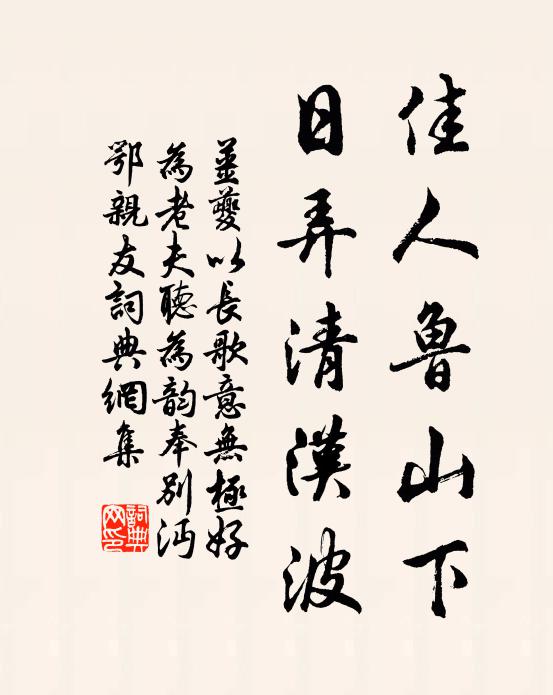 佳人魯山下
日弄清漢波
薑夔以長歌意無極好
為老夫聽為韵奉別沔
鄂親友詞典網集
詞典
网印